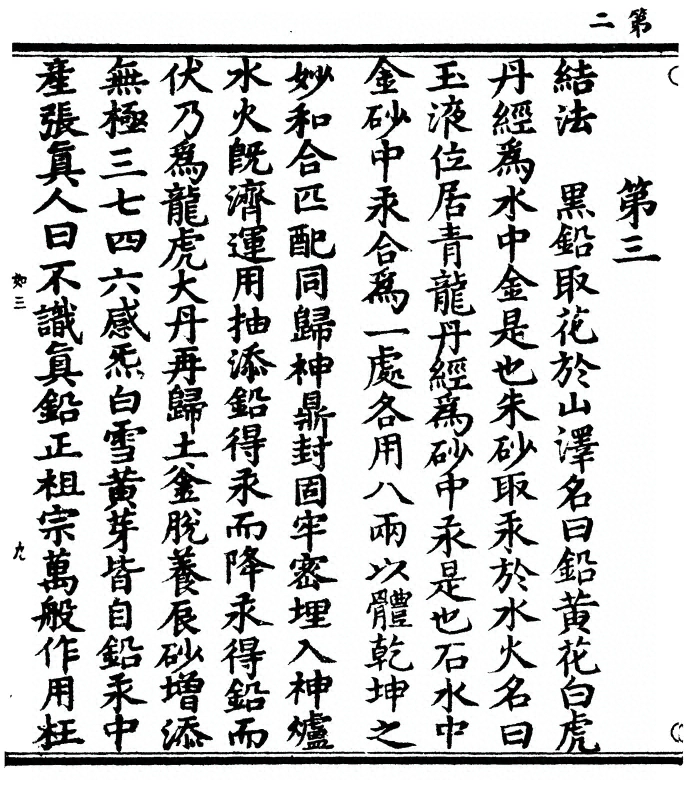 第二
第三
結法　黒鉛取花於山澤名曰鉛黃花白虎
丹經爲水中金是也朱砂取汞於水火名曰
玉液位居青龍丹經爲砂中汞是也石水中
金砂中汞合爲一處各用八兩以體乾坤之
妙和合匹配同歸神鼎封固牢密埋入神爐
水火旣濟運用抽添鉛得汞而降汞得鉛而
伏乃爲龍虎大丹再歸土釜脫養辰砂增添
無極三七四六感炁白雪黃芽皆自鉛汞中
產張眞人曰不識眞鉛正祖宗萬般作用枉
如三
九